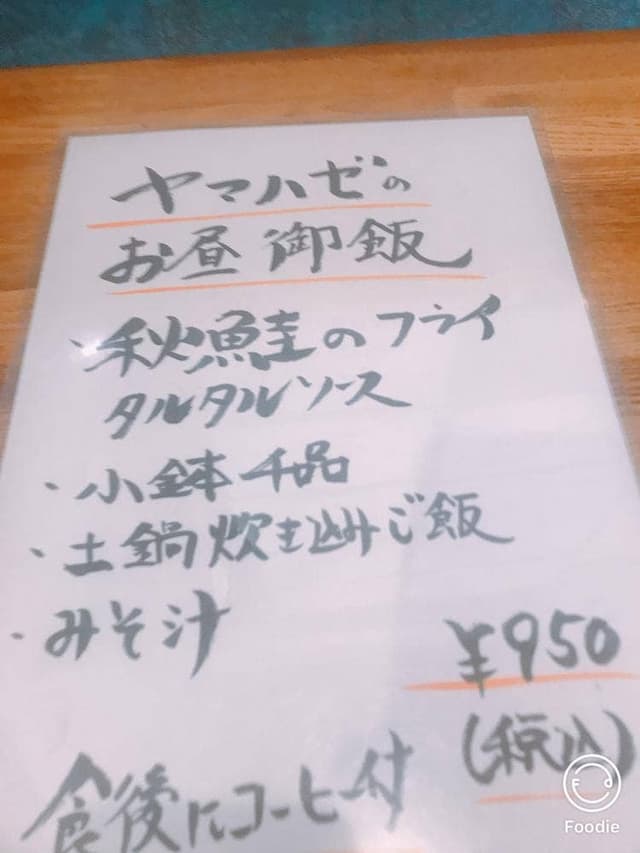 ヤマハゼの
お昼御飯
・秋鮭のフライ
タルタルソース
・小鉢千品
・土鍋炊き込みご飯
・みそ汁
¥950
(税込)
食後にコーヒー付
Foodie